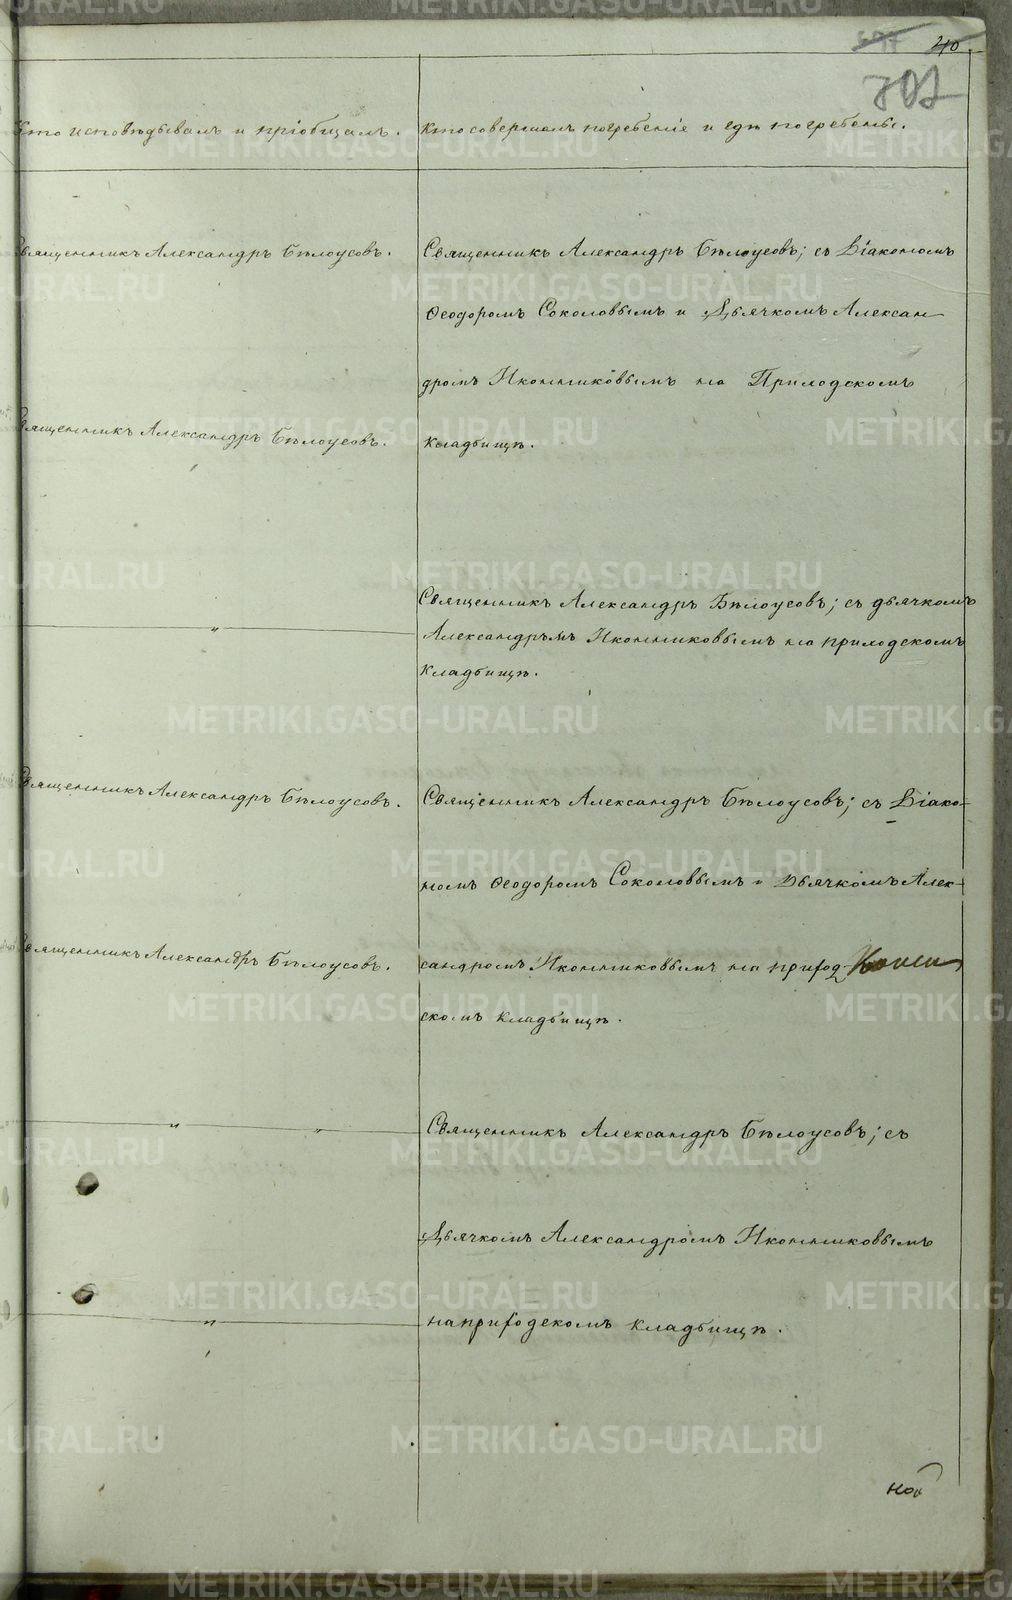 40
707
Кто исповѣдывалъ и пріобщалъ.
Кто совершалъ погребеніе и гдѣ погребены.
Священникъ Александръ Бѣлоусовъ.
Священникъ Александръ Бѣлоусовъ; съ Діакономъ
Ѳеодоромъ Соколовымъ и Дьячкомъ Алексан-
дромъ Иконниковымъ на Приходскомъ
Священникъ Александръ Бѣлоусовъ.
кладбищѣ.
Священникъ Александръ Бѣлоусовъ; съ дьячкомъ
Александромъ Иконниковымъ на приходскомъ
кладбищѣ.
Священникъ Александръ Бѣлоусовъ.
Священникъ Александръ Бѣлоусовъ; съ Діако-
номъ Ѳеодоромъ Соколовымъ и Дьячкомъ Алек-
Священникъ Александръ Бѣлоусовъ.
сандромъ Иконниковымъ на приход-
скомъ кладбищѣ.
Священникъ Александръ Бѣлоусовъ; съ
Дьячкомъ Александромъ Иконниковымъ
на приходскомъ кладбищѣ.
METRIKI.GASO-URAL.RU